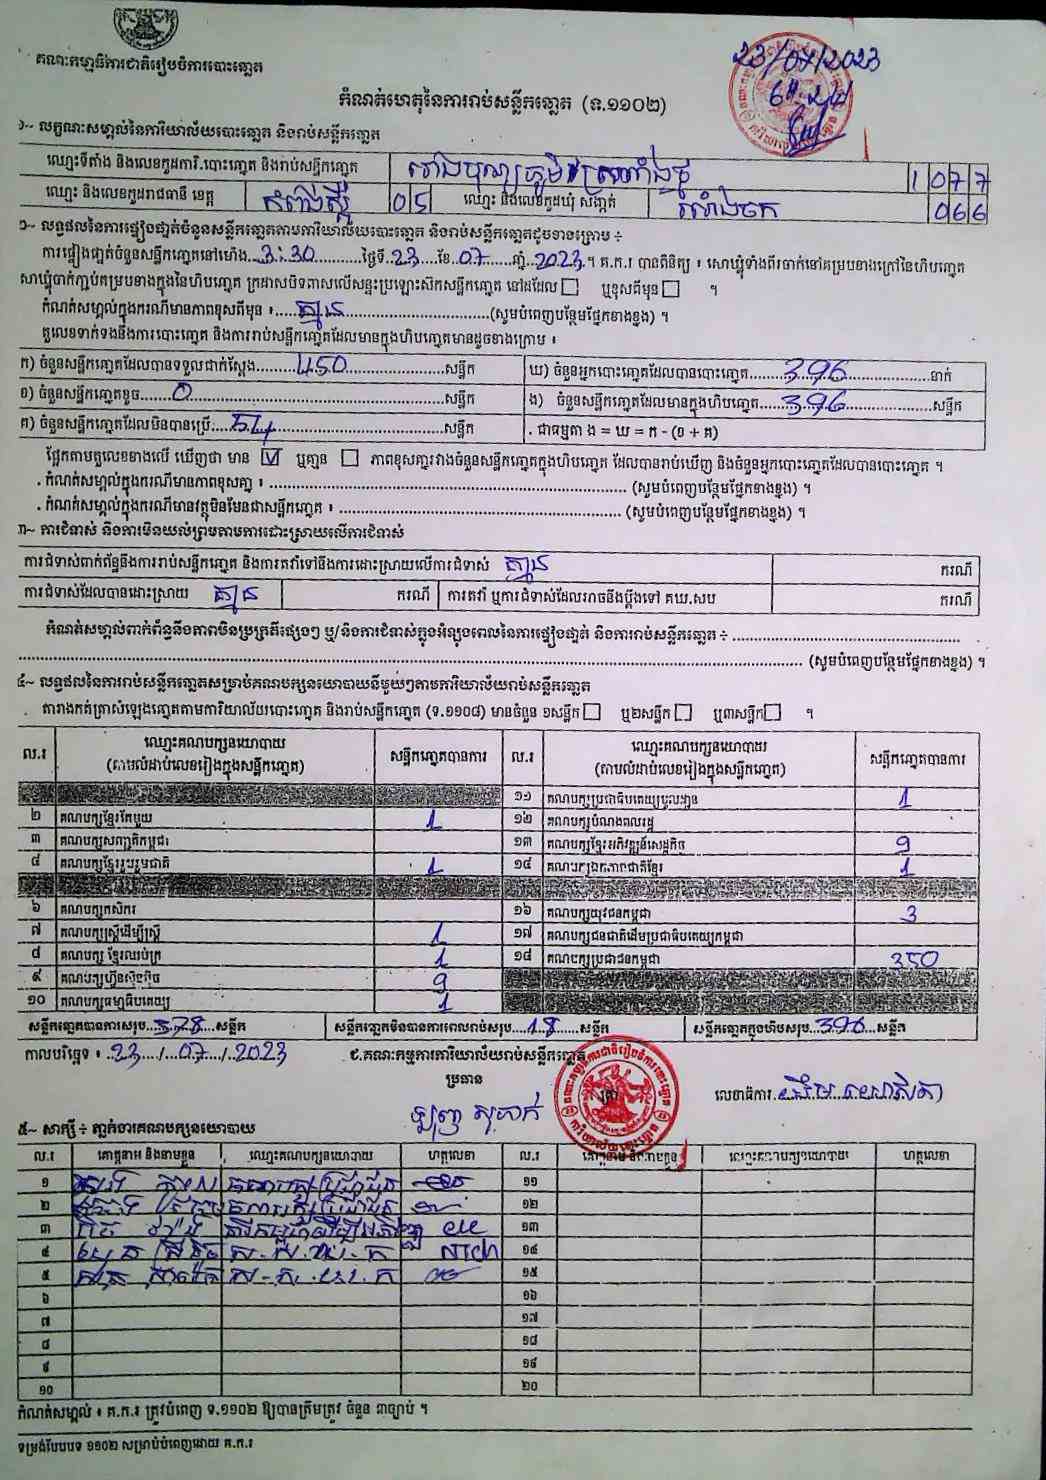 គណៈកម្មាធិការជាតិរៀបចំការបោះឆ្នោត
23/07/2023
កំណត់ហេតុនៃការរាប់សន្លឹកឆ្នោត (ទ.១១០២)
១~ លក្ខណៈសម្គាល់នៃការិយាល័យបោះឆ្នោត និងរាប់សន្លឹកឆ្នោត
ឈ្មោះទីតាំង និងលេខកូដការិ.បោះឆ្នោត និងរាប់សន្លឹកឆ្នោត 1077
ឈ្មោះ និងលេខកូដរាជធានី ខេត្ត កំពង់ស្ពឺ 05 ឈ្មោះ និងលេខកូដឃុំ សង្កាត់ 066
២~ លទ្ធផលនៃការផ្ទៀងផ្ទាត់ចំនួនសន្លឹកឆ្នោតតាមការិយាល័យបោះឆ្នោត និងរាប់សន្លឹកឆ្នោតដូចខាងក្រោម ÷
ការផ្ទៀងផ្ទាត់ចំនួនសន្លឹកឆ្នោតនៅម៉ោង 3:30 ថ្ងៃទី 23 ខែ 07 ឆ្នាំ 2023 ។ គ.ក.រ បានពិនិត្យ ៖ សោឃ្លុំទាំងពីរចាក់នៅគម្របខាងក្រៅនៃហិបឆ្នោត
សោឃ្លុំចាក់ភ្ជាប់គម្របខាងក្នុងនៃហិបឆ្នោត ក្រដាសបិទពាសលើសន្ទះប្រឡោះស៊កសន្លឹកឆ្នោត នៅដដែល ឬខុសពីមុន ។
កំណត់សម្គាល់ក្នុងករណីមានភាពខុសពីមុន ៖ គ្មាន (សូមបំពេញបន្ថែមផ្នែកខាងខ្នង) ។
តួលេខទាក់ទងនឹងការបោះឆ្នោត និងការរាប់សន្លឹកឆ្នោតដែលមានក្នុងហិបឆ្នោតមានដូចខាងក្រោម ៖
ក) ចំនួនសន្លឹកឆ្នោតដែលបានទទួលជាក់ស្តែង 450 សន្លឹក ឃ) ចំនួនអ្នកបោះឆ្នោតដែលបានបោះឆ្នោត 396 នាក់
ខ) ចំនួនសន្លឹកឆ្នោតខូច 0 សន្លឹក ង) ចំនួនសន្លឹកឆ្នោតដែលមានក្នុងហិបឆ្នោត 396 សន្លឹក
គ) ចំនួនសន្លឹកឆ្នោតដែលមិនបានប្រើ 54 សន្លឹក . ជាធម្មតា ង = ឃ = ក - (ខ + គ)
ផ្អែកតាមតួលេខខាងលើ ឃើញថា មាន ☑ ឬគ្មាន ☐ ភាពខុសគ្នារវាងចំនួនសន្លឹកឆ្នោតក្នុងហិបឆ្នោត ដែលបានរាប់ឃើញ និងចំនួនអ្នកបោះឆ្នោតដែលបានបោះឆ្នោត ។
. កំណត់សម្គាល់ក្នុងករណីមានភាពខុសគ្នា ៖ (សូមបំពេញបន្ថែមផ្នែកខាងខ្នង) ។
. កំណត់សម្គាល់ក្នុងករណីមានវត្ថុមិនមែនជាសន្លឹកឆ្នោត ៖ (សូមបំពេញបន្ថែមផ្នែកខាងខ្នង) ។
៣~ ការជំទាស់ និងការមិនយល់ព្រមតាមការដោះស្រាយលើការជំទាស់
ការជំទាស់ពាក់ព័ន្ធនឹងការរាប់សន្លឹកឆ្នោត និងការតវ៉ាទៅនឹងការដោះស្រាយលើការជំទាស់ គ្មាន ករណី
ការជំទាស់ដែលបានដោះស្រាយ គ្មាន ករណី ការតវ៉ា ឬការជំទាស់ដែលរាចនឹងប្តឹងទៅ គឃ.សប ករណី
កំណត់សម្គាល់ពាក់ព័ន្ធនឹងភាពមិនប្រក្រតីផ្សេងៗ ឬ/និងការជំទាស់ក្នុងអំឡុងពេលនៃការផ្ទៀងផ្ទាត់ និងការរាប់សន្លឹកឆ្នោត ÷
(សូមបំពេញបន្ថែមផ្នែកខាងខ្នង) ។
៤~ លទ្ធផលនៃការរាប់សន្លឹកឆ្នោតសម្រាប់គណបក្សនយោបាយនីមួយៗតាមការិយាល័យរាប់សន្លឹកឆ្នោត
តារាងកត់ត្រាសំឡេងឆ្នោតតាមការិយាល័យបោះឆ្នោត និងរាប់សន្លឹកឆ្នោត (ទ.១១០៨) មានចំនួន ១សន្លឹក ឬ២សន្លឹក ឬ៣សន្លឹក ។
ល.រ ឈ្មោះគណបក្សនយោបាយ (តាមលំដាប់លេខរៀងក្នុងសន្លឹកឆ្នោត) សន្លឹកឆ្នោតបានការ ល.រ ឈ្មោះគណបក្សនយោបាយ (តាមលំដាប់លេខរៀងក្នុងសន្លឹកឆ្នោត) សន្លឹកឆ្នោតបានការ
១១ គណបក្សប្រជាធិបតេយ្យមូលដ្ឋាន 1
២ គណបក្សខ្មែរតែមួយ 1 ១២ គណបក្សបំណងពលរដ្ឋ
៣ គណបក្សសញ្ជាតិកម្ពុជា ១៣ គណបក្សខ្មែរអភិវឌ្ឍន៍សេដ្ឋកិច្ច 9
៤ គណបក្សខ្មែររួបរួមជាតិ 1 ១៤ គណបក្សឯកភាពជាតិខ្មែរ 1
៦ គណបក្សកសិករ ១៦ គណបក្សយុវជនកម្ពុជា 3
៧ គណបក្សស្ត្រីដើម្បីស្ត្រី 1 ១៧ គណបក្សជនជាតិដើមប្រជាធិបតេយ្យកម្ពុជា
៨ គណបក្ស ខ្មែរឈប់ក្រ 1 ១៨ គណបក្សប្រជាជនកម្ពុជា 350
៩ គណបក្សហ៊្វុនស៊ិនប៉ិច 9
១០ គណបក្សធម្មាធិបតេយ្យ 1
សន្លឹកឆ្នោតបានការសរុប 378 សន្លឹក សន្លឹកឆ្នោតមិនបានការពេលរាប់សរុប 18 សន្លឹក សន្លឹកឆ្នោតក្នុងហិបសរុប 396 សន្លឹក
កាលបរិច្ឆេទ ៖ 23/07/2023 ជ.គណៈកម្មការការិយាល័យរាប់សន្លឹកឆ្នោត
ប្រធាន
លេខាធិការ
៥~ សាក្សី ÷ ភ្នាក់ងារគណបក្សនយោបាយ
ល.រ គោត្តនាម និងនាមខ្លួន ឈ្មោះគណបក្សនយោបាយ ហត្ថលេខា ល.រ គោត្តនាម និងនាមខ្លួន ឈ្មោះគណបក្សនយោបាយ ហត្ថលេខា
១ គណបក្សប្រជាជន ១១
២ គណបក្សប្រជាជន ១២
៣ ១៣
៤ ១៤
៥ ១៥
៦ ១៦
៧ ១៧
៨ ១៨
៩ ១៩
១០ ២០
កំណត់សម្គាល់ ៖ គ.ក.រ ត្រូវបំពេញ ទ.១១០២ ឱ្យបានត្រឹមត្រូវ ចំនួន ៣ច្បាប់ ។
ទម្រង់បែបបទ ១១០២ សម្រាប់បំពេញដោយ គ.ក.រ